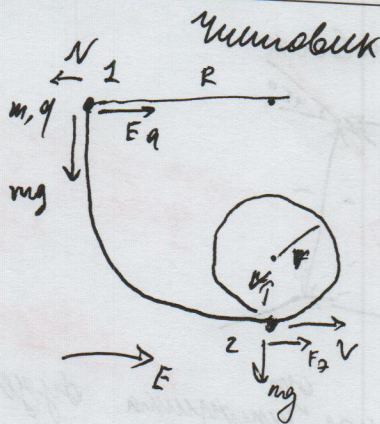 Чистовик
N 1 R
m, q
Eq
mg
r
N
2 F₂ V
mg
E